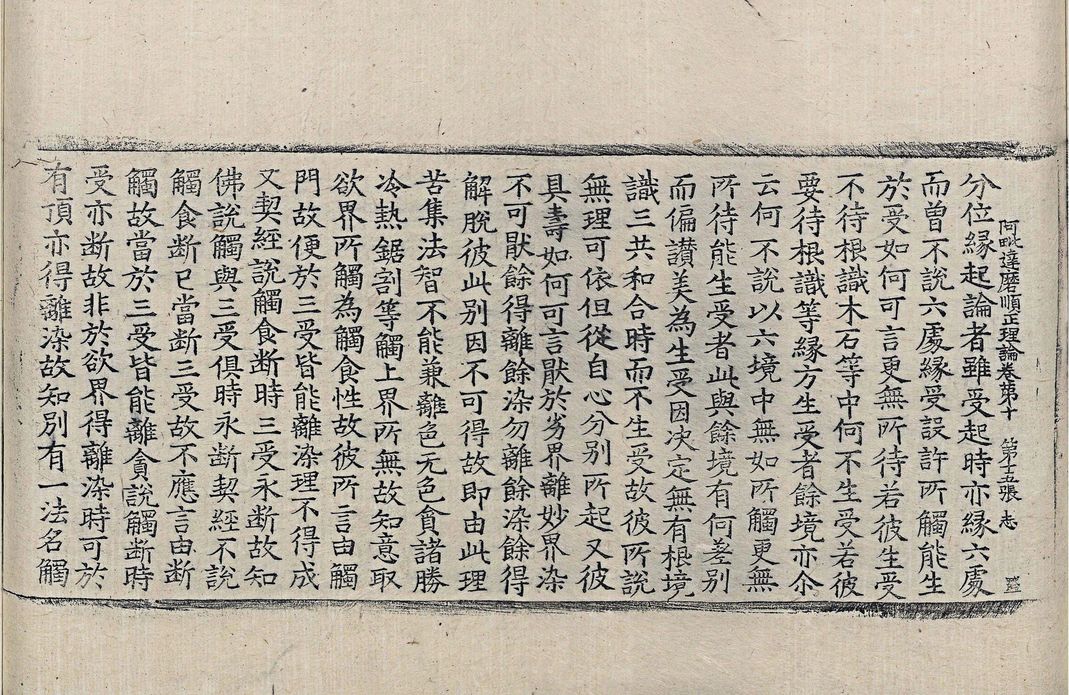 阿毗達磨順正理論卷第十 第十五張 志
分位緣起論者雖受起時亦緣六處
而曾不說六處緣受設許所觸能生
於受如何可言更無所待若彼生受
不待根識木石等中何不生受若彼
要待根識等緣方生受者餘境亦尒
云何不說以六境中無如所觸更無
所待能生受者此與餘境有何差別
而偏讃美為生受因決定無有根境
識三共和合時而不生受故彼所說
無理可依但從自心分別所起又彼
具壽如何可言猒於劣界離妙界染
不可猒餘得離餘染勿離餘染餘得
解脫彼此別因不可得故即由此理
苦集法智不能兼離色无色貪諸勝
冷熱鋸割等觸上界所無故知意取
欲界所觸為觸食性故彼所言由觸
門故便於三受皆能離染理不得成
又契經說觸食断時三受永断故知
佛說觸與三受俱時永断契經不說
觸食断已當断三受故不應言由断
觸故當於三受皆能離貪說觸断時
受亦断故非於欲界得離染時可於
有頂亦得離染故知別有一法名觸